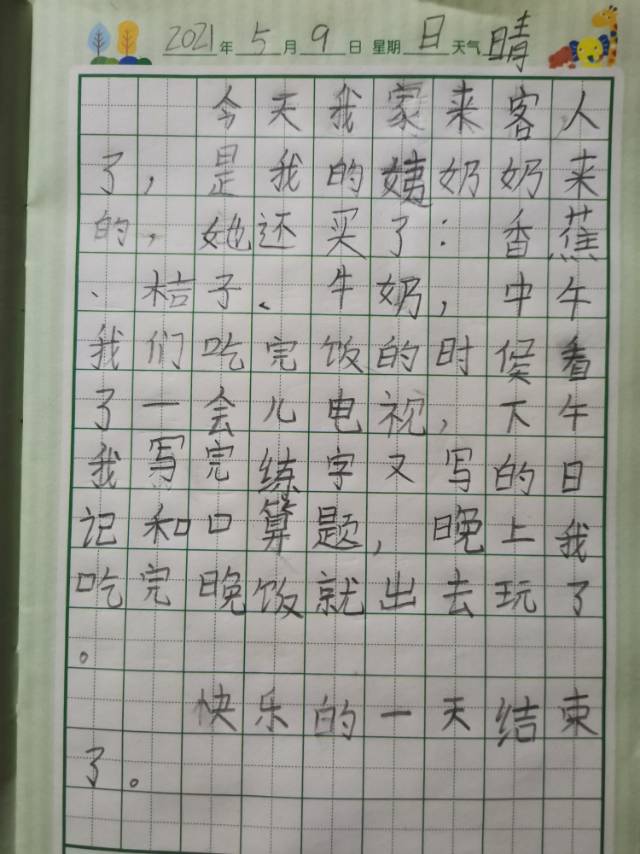 2021年5月9日 星期日天气晴
今天我家来客人
了，是我的姨奶奶来
的，她还买了：香蕉
、桔子、牛奶，中午
我们吃完饭的时候看
了一会儿电视，下午
我写完练字又写的日
记和口算题，晚上我
吃完晚饭就出去玩了
。
快乐的一天结束
了。